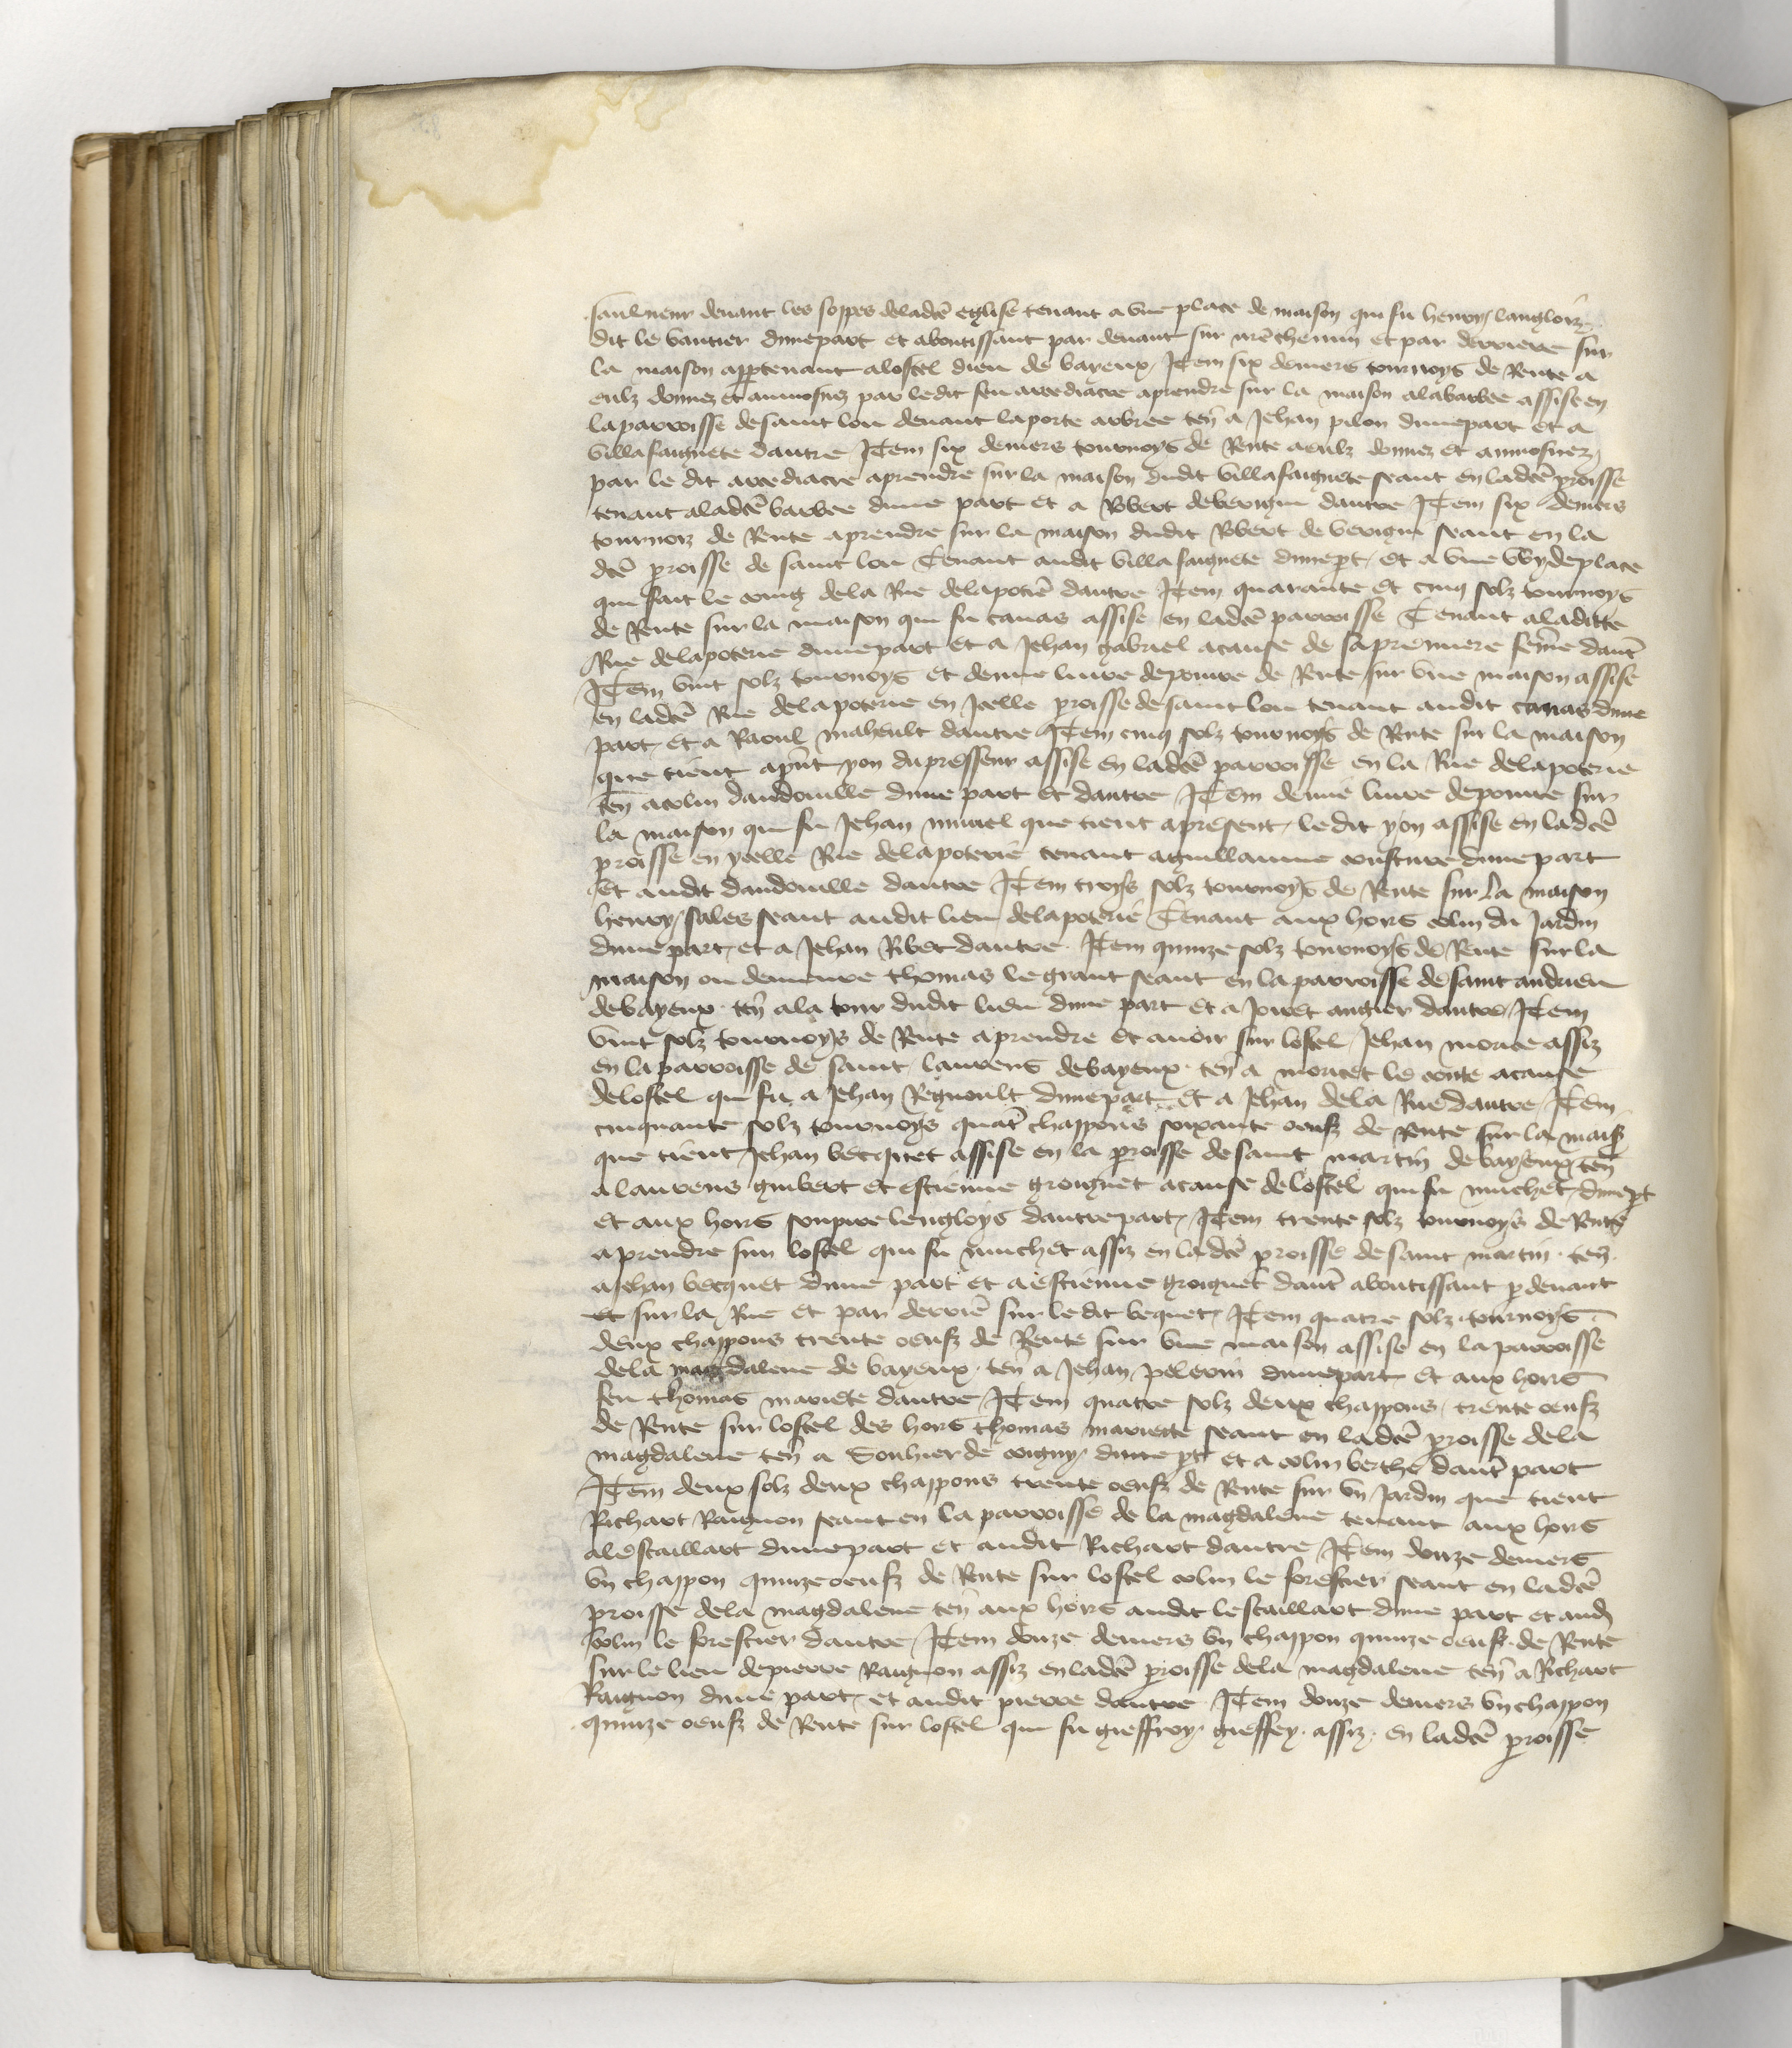 saulneur devant les soppes deladcē eglise tenant a vne place de maison qui fu henry langloiz
dit le vautier dunepart et aboutissant par devant sur nrē chemin et par derriere sur
la maison apptenant alostel dieu de bayeux Item six deniers tournoys de Rente a
eulz donnez et aumosnez par ledit feu arcediacre aprendre sur la maison alabarbee assise en
la parroisse de saint lou devant la porte arbree teñ a Jehan pilon dunepart et a
villafaignete dautre Item six deniers tournoys de Rente aeulz donnez et aumosnez
par le dit arcediacre aprendre sur la maison dudit villafaignete seant en ladcē proisse
tenant aladcē barbee dune part et a Robert deverigny dautre Item six deniers
tournoiz de Rente aprendre sur la maison dudit Robert de verigny seant en la
dcē proisse de saint lou Tenant audit villafaignete dunepart et a vne wydeplace
que fait le coing dela Rue delapotiē dautre Item quarante et cinq solz tournoys
de Rente sur la maison qui fu canas assise en ladcē parroisse Tenant aladitte
Rue delapoterie dunepart et a Jehan gabriel acause de sapremiere feme dautr
Item vint solz tournoys et demie livre depoivre de Rente sur vne maison assise
en ladcē Rue delapoterie en Icelle proisse de saint lou tenant audit canas dune
part et a Raoul maheult dautre Item cinq solz tournoys de Rente sur la maison
que tient apñt yon dupresseur assise en ladcē parroisse en la Rue delapoterie
teñ acolin dandouille dune part et dautre Item demie livre depoivre sur
la maison qui fu Jehan muriel que tient apresent ledit yon assise en ladcē
proisse en ycelle Rue delapoterie tenant aguillaume cousture dunepart
et audit dandouille dautre Item troys solz tournoys de Rente sur la maison
henry sales seant audit lieu delapoterie Tenant aux hors colin du Jardin
dunepart et a Jehan Ribet dautre Item quinze solz tournoys de Rente sur la
maison ou demeure thomas legrant seant en la parroisse de saint andrieu
debayeux teñ ala tour dudit lieu dune part et a Joret augier dautre Item
vint solz tournoys de Rente aprendre et avoir sur lostel Jehan morice assiz
en la parroisse de saint laurens debayeux teñ a moricet le conte acause
delostel qui fu a Jehan Regnoult dunepart et a Jehan dela Rue dautre Item
cinquante solz tournoys quatr chappons soixante oeufz de Rente sur la mais
que tient Jehan becquet assise en la proisse de saint martin debayeux teñ
a laurens guibert et estienne groignet acause de lostel qui fu muchet dunept
et aux hors soupire lengloys dautrepart Item trente solz tournoys de Rente
aprendre sur lostel qui fu muchet assiz en ladcē proisse de saint martin teñ
aJehan becquet dune part et aestienne groignet dautr aboutissant p devant
et sur la Rue et par derriē sur ledit bequet Item quatre solz tournoys
deux chappons trente oeufz de Rente sur vne maison assise en la parroisse
dela magdalene de bayeux teñ a Jehan pelerin dunepart et aux hors
feu thomas mariete dautre Item quatre solz deux chappons trente oeufz
de Rente sur lostel des hors thomas mariette seant en ladcē proisse dela
magdalene teñ a Souhier de coigny dune pt et a colin berthe dautr part
Item deux solz deux chappons trente oeufz de Rente sur vn Jardin que tient
Richart Raignon seant en la parroisse de la magdalene tenant aux hors
alescaillart dunepart et audit Richart dautre Item douze deniers
vn chappon quinze oeufz de Rente sur lostel colin le forestier seant en ladcē
proisse dela magdalene teñ aux hors audit lescaillart dune part et aud
colin le forestier dautre Item douze deniers vn chappon quinze oeufz de Rente
sur le lieu depierre Raignon assiz en ladcē proisse dela magdalene teñ a Richart
Raignon dune part et audit pierre dautre Item douze deniers vn chappon
quinze oeufz de Rente sur lostel que fu gieffroy gieffey assiz en ladcē proisse